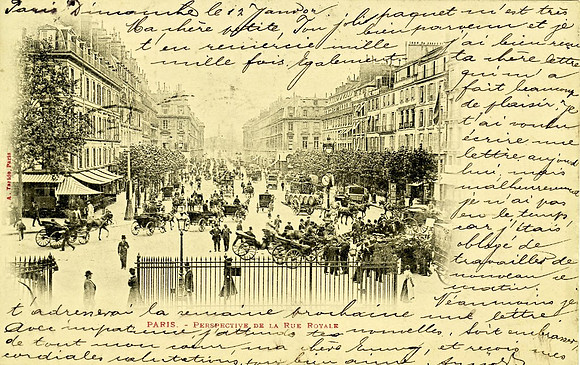 Paris Dimanche le 12 Janvier
Ma chère petite, Ton joli paquet m'est très
bien parvenu et je
t'en remercie mille
mille fois également
j'ai bien reçu
ta chère lettre
qui m'a
fait beaucoup
de plaisir, je
t'ai voulu
écrire une
lettre aujourd
hui, mais
malheureuse
je n'ai pas
eu le temps,
car j'étais
obligé de
travailler de
nouveau ce
matin.
Néanmoins je
t'adresserai la prochaine une lettre
Avec j'attends tes nouvelles, Soit embrassée
de tout mon ma chère et reçois mes
cordiales salutations, ton bien aimé
A. Taride, Paris
PARIS. - PERSPECTIVE DE LA RUE ROYALE